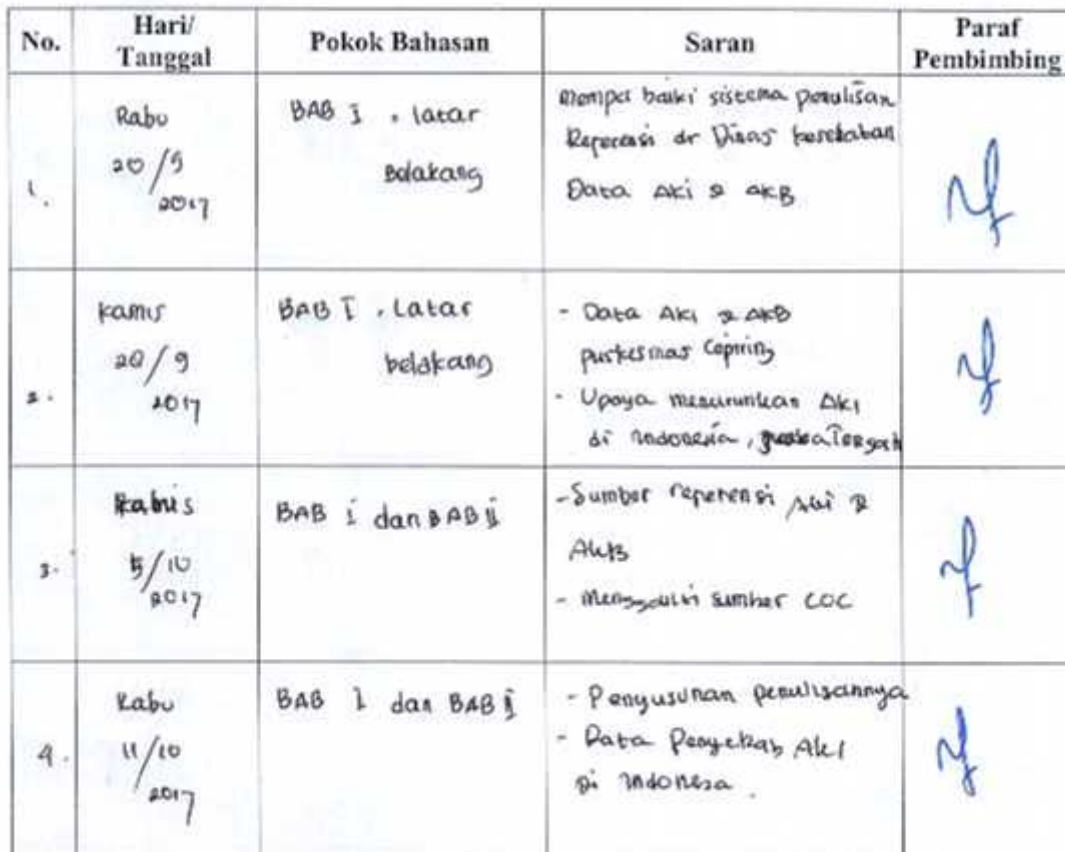 No. Hari/ Tanggal Pokok Bahasan Saran Paraf Pembimbing
1. Rabu 20/9 2017
BAB I . latar
Belakang
Memperbaiki sistema penulisan
Reperensi dr Dinas kesehatan
Data AKI & AKB
2. Kamis 20/9 2017
BAB I . Latar
belakang
- Data AKI & AKB
puskesmas Cepiring
- Upaya menurunkan AKI
di Indonesia, Tengah
3. Kamis 5/10 2017
BAB I dan BAB II
- Sumber reperensi AKI &
AKB
- sumber COC
4. Rabu 11/10 2017
BAB I dan BAB II
- Penyusunan penulisannya
- Data Penyebab AKI
di Indonesa.